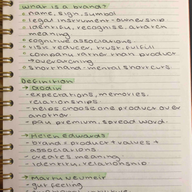 What is a brand?
• name, sign, symbol
• legal instrument - ownership
• identify, recognise, attaten
meaning
• cognitive associations
• risk reducer, trust, fulfill
• company rather than product
→ overarching
• shorthand - mental shortcuts
Definition
→ Godin
- expectations, memories,
relationships
- helps choose one product over
another
- pay premium, spread word
→ Helen Edwards
- brand = product + values +
associations
- creates meaning
- identity, relationship
→ Marty Neumeir
- gut feeling